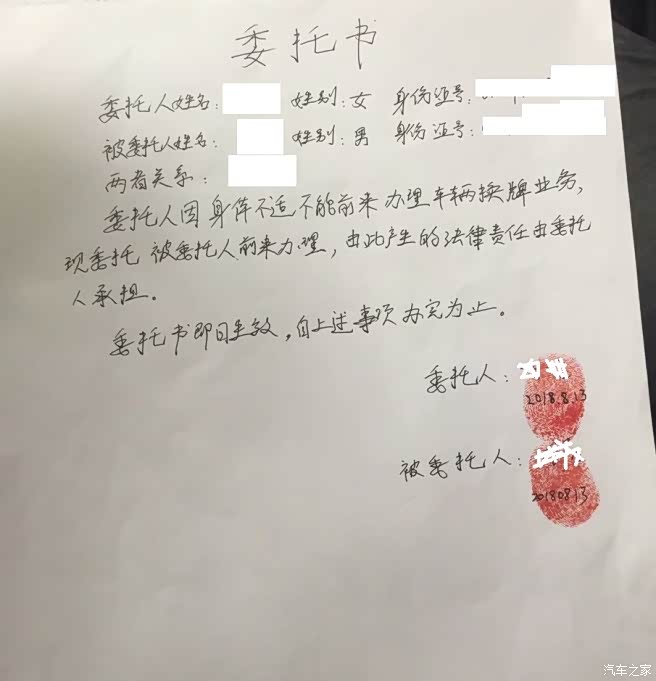 委托书
委托人姓名: 姓别:女 身份证号:
被委托人姓名: 姓别:男 身份证号:
两者关系:
委托人因身体不适不能前来办理车辆换牌业务,
现委托 被委托人前来办理,由此产生的法律责任由委托
人承担。
委托书即日生效,自上述事项办完为止。
委托人:
2018.8.13
被委托人:
20180813
汽车之家